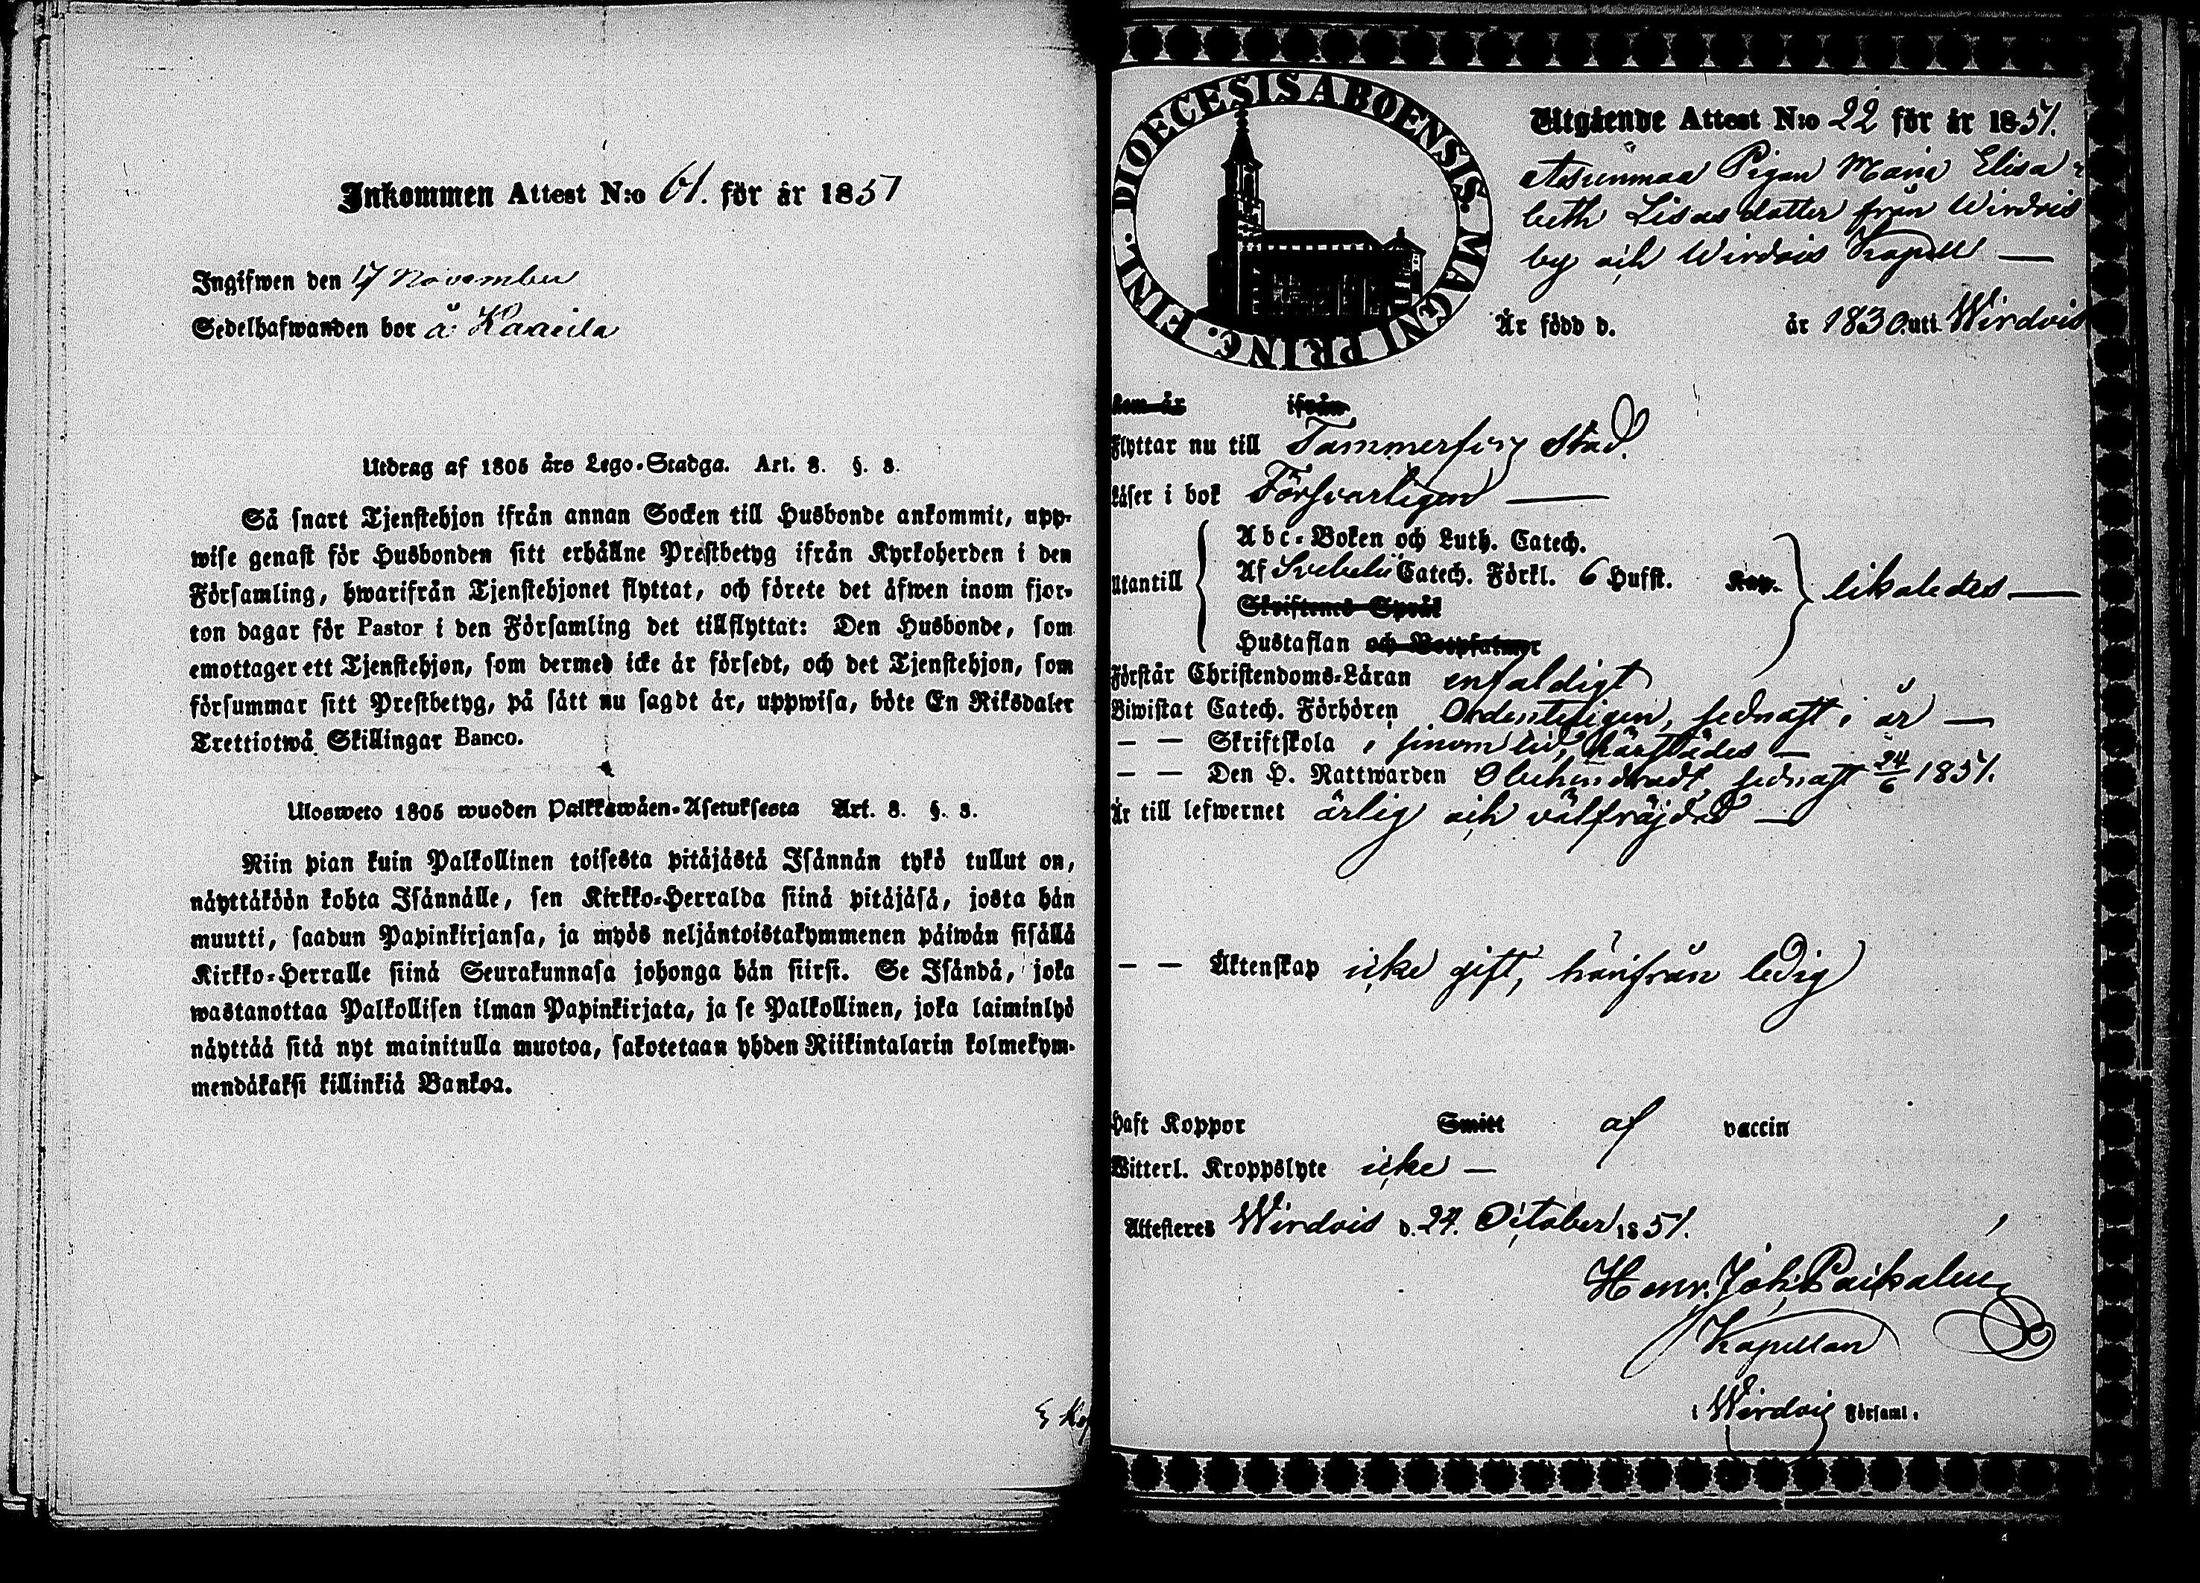 Inkommen Attest N:o 61. för år 1851
Ingifwen den 17 November
Sedelhafwanden bor å Kaarila
Utdrag af 1805 års Lego-Stadga. Art. 8. §. 8.
Så snart Tjenstehjon ifrån annan Socken till Husbonde ankommit, upp-
wise genast för Husbonden sitt erhållne Prestbetyg ifrån Kyrkoherden i den
Församling, hwarifrån Tjenstehjonet flyttat, och förete det äfwen inom fjor-
ton dagar för Pastor i den Församling det tillflyttat: Den Husbonde, som
emottager ett Tjenstehjon, som dermed icke är försedt, och det Tjenstehjon, som
försummar sitt Prestbetyg, på sätt nu sagdt är, uppwisa, böte En Riksdaler
Trettiotwå Skillingar Banco.
Ulosweto 1805 wuoden Palkkawäen-Asetuksesta Art. 8. §. 8.
Niin pian kuin Palkollinen toisesta pitäjästä Isännän tykö tullut on,
näyttäköön kohta Isännälle, sen Kirkko-Herralda siinä pitäjäsä, josta hän
muutti, saadun Papinkirjansa, ja myös neljäntoistakymmenen päiwän sisällä
Kirkko-Herralle siinä Seurakunnasa johonga hän siirsi. Se Isändä, joka
wastanottaa Palkollisen ilman Papinkirjata, ja se Palkollinen, joka laiminlyö
näyttää sitä nyt mainitulla muotoa, sakotetaan yhden Riikintalarin kolmekym-
mendäkaksi killinkiä Bankoa.
DIOECESIS ABOENSIS. MAGNI PRINC. FINL.
Utgående Attest N:o 22 för år 1851.
Pigan Maria Elisa-
beth Lisasdotter från Wirdois
by och Wirdois Kapell —
Är född d. år 1830 uti Wirdois
kom år ifrån
Flyttar nu till Tammerfors Stad.
Läser i bok Försvarligen —
Utantill
Abc-Boken och Luth. Catech.
Af Svebelii Catech. Förkl. 6 Hufst. Kap. likaledes —
Skriftenes Språk
Hustaflan och Botpsalmer
Förstår Christendoms-Läran enfaldigt
Biwistat Catech. Förhören Ordenteligen, sednast i år —
— — Skriftskola härstädes —
— — Den H. Nattwarden Obehindradt, sednast 24/6 1851.
Är till lefwernet ärlig och välfräjdad —
— — Äktenskap icke gift, härifrån ledig
Haft Koppor Smitt af vaccin
Witterl. Kroppslyte icke —
Attesteres Wirdois d. 24. October 1851.
Henr. Joh.
Kapellan
i Wirdois Församl.